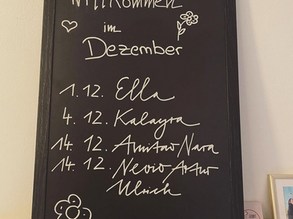 Willkommen
im
Dezember
1.12. Ella
4.12. Kalayra
14.12. Amitav Nara
14.12. Nevio Artur
Ulrich